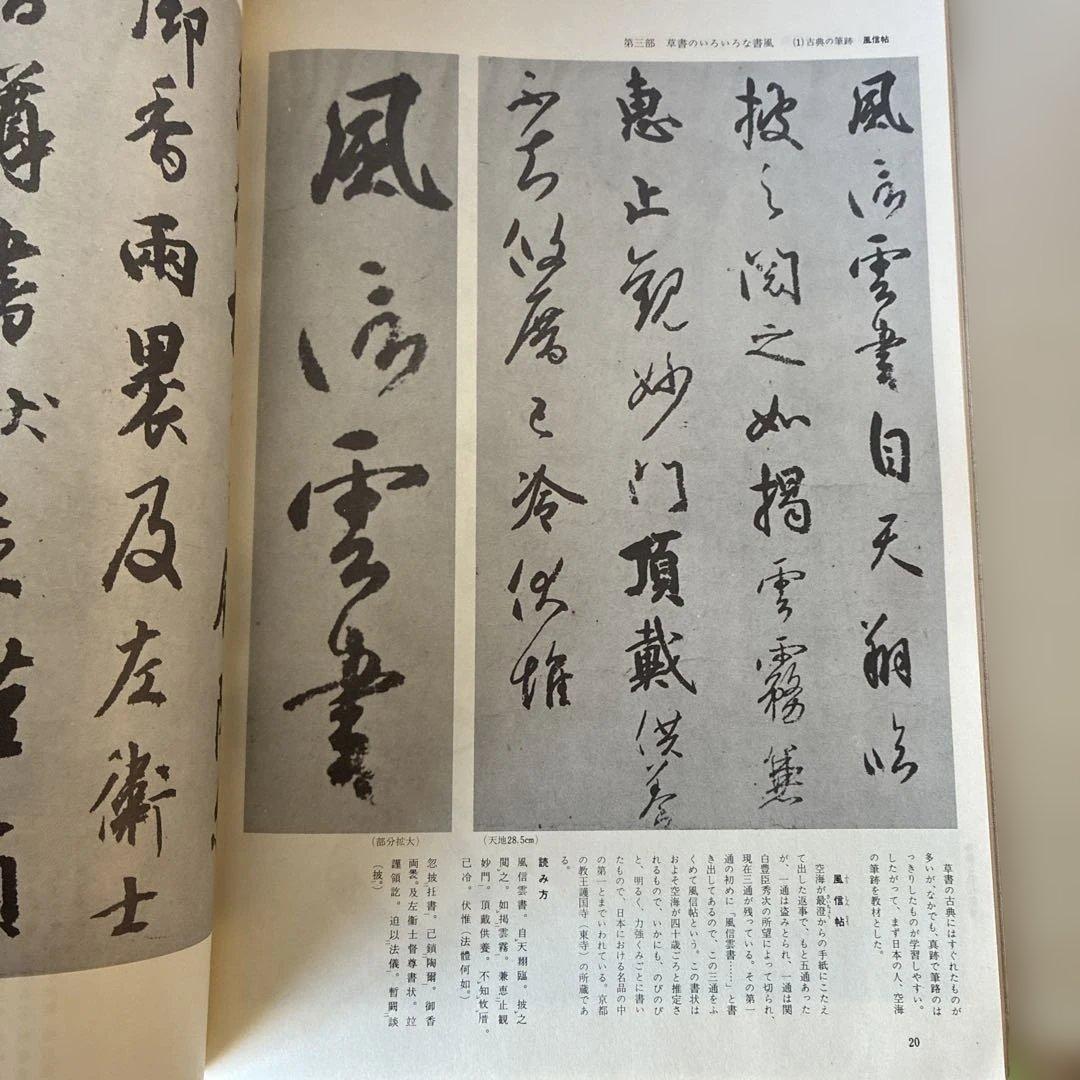 第三部　草書のいろいろな書風　(1)古典の筆跡　風信帖
風信雲書自天翔臨
披之閲之如揭雲霧兼
惠止觀妙門頂戴供養
不知攸厝已冷伏惟
(天地28.5cm)
風信雲書
(部分拡大)
草書の古典にはすぐれたものが
多いが、なかでも、真跡で筆路のは
っきりしたものが学習しやすい。
したがって、まず日本の人、空海
の筆跡を教材とした。
風信帖
空海が最澄からの手紙にこたえ
て出した返事で、もと五通あった
が、一通は盗みとられ、一通は関
白豊臣秀次の所望によって切られ、
現在三通が残っている。その第一
通の初めに「風信雲書……」と書
き出してあるので、この三通をふ
くめて風信帖という。この書状は
およそ空海が四十歳ごろと推定さ
れるもので、いかにも、のびのび
と、明るく、力強くみごとに書い
たもので、日本における名品の中
の第一とまでいわれている。京都
の教王護国寺（東寺）の所蔵であ
る。
読み方
風信雲書。自天翔臨。披之
閲之。如揭雲霧。兼恵止観
妙門。頂戴供養。不知攸厝。
已冷。伏惟（法體何如。）
忽披枉書。已鎖陶爾。御香
両裹。及左衛士督尊書状。竝
謹領訖。迫以法儀。暫闕談
（披。）
20
御香兩裹及左衛士
尊書状